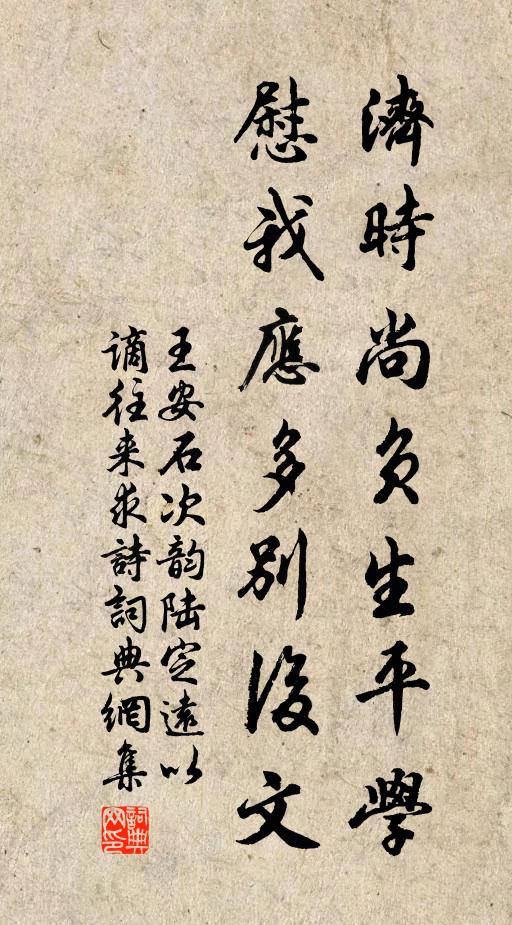 濟時尚負生平學
慰我應多別後文
王安石次韵陆定遠以
謫往来求詩詞典網集
詞典
网印